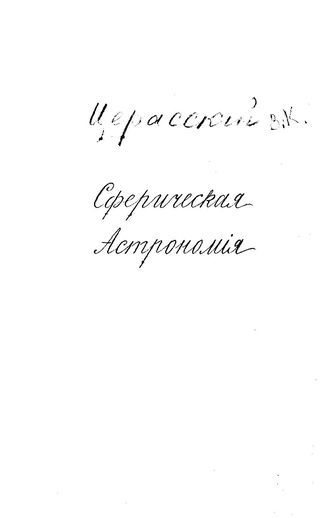 Церасский В.К.
Сферическая
Астрономія